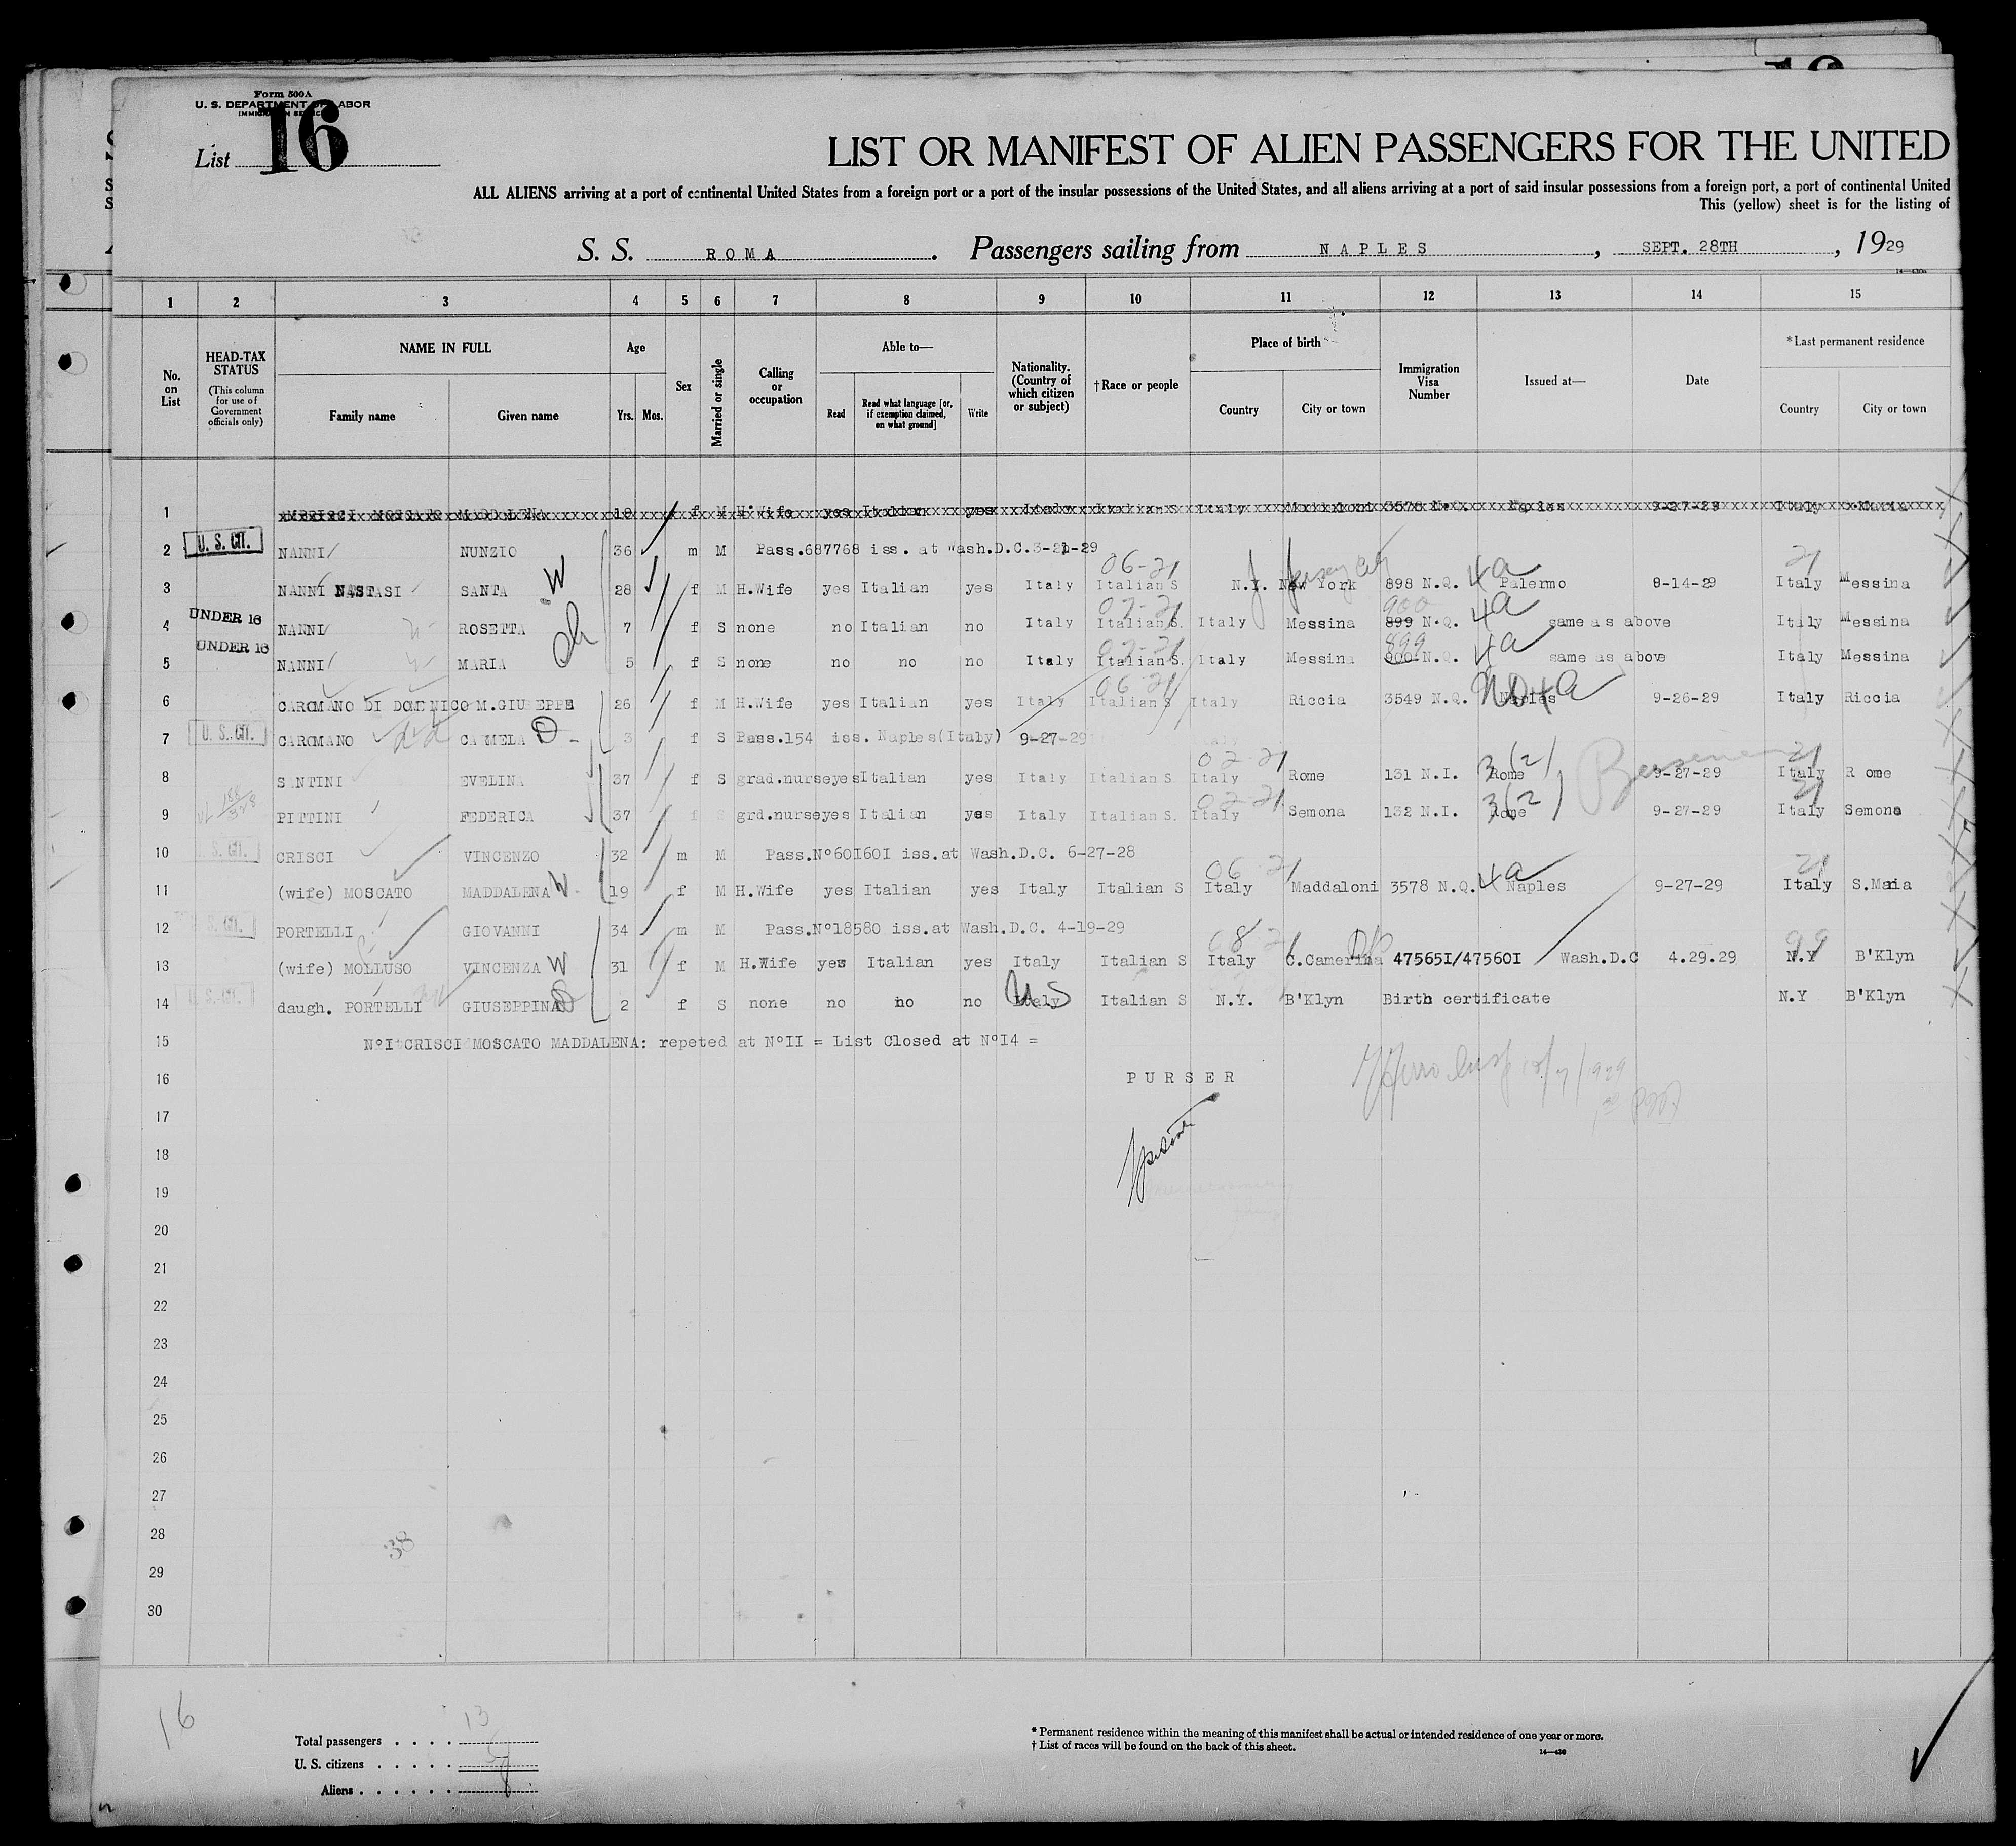 Form 500A
U. S. DEPARTMENT OF LABOR
IMMIGRATION SERVICE
List 16
LIST OR MANIFEST OF ALIEN PASSENGERS FOR THE UNITED
ALL ALIENS arriving at a port of continental United States from a foreign port or a port of the insular possessions of the United States, and all aliens arriving at a port of said insular possessions from a foreign port, a port of continental United
This (yellow) sheet is for the listing of
S. S. ROMA. Passengers sailing from NAPLES, SEPT. 28TH, 1929
1 2 3 4 5 6 7 8 9 10 11 12 13 14 15
No. on List
HEAD-TAX STATUS (This column for use of Government officials only)
NAME IN FULL Family name Given name
Age Yrs. Mos.
Sex
Married or single
Calling or occupation
Able to— Read Read what language [or, if exemption claimed, on what ground] Write
Nationality. (Country of which citizen or subject)
†Race or people
Place of birth Country City or town
Immigration Visa Number
Issued at—
Date
*Last permanent residence Country City or town
1 MADDALENA 19 f M H.Wife yes Italian yes Italy Italian S Italy Maddaloni 3578 N.Q. Naples 9-27-29 Italy S.Maria
2 U. S. CIT. NANNI NUNZIO 36 m M Pass.687768 iss. at Wash.D.C.3-21-29
3 NANNI NASTASI SANTA W 28 f M H.Wife yes Italian yes Italy Italian S 06-21 N.Y. New York Jersey City 898 N.Q. 4a Palermo 8-14-29 21 Italy Messina
4 UNDER 16 NANNI ROSETTA ch 7 f S none no Italian no Italy Italian S. 07-21 Italy Messina 899 900 N.Q. 4a same as above Italy Messina
5 UNDER 16 NANNI MARIA 5 f S none no no no Italy Italian S. 07-21 Italy Messina 900 899 N.Q. 4a same as above Italy Messina
6 CAROMANO DI DOMENICO M.GIUSEPPE 26 f M H.Wife yes Italian yes Italy Italian S 06-21 Italy Riccia 3549 N.Q. Naples 9-26-29 Italy Riccia
7 U. S. CIT. CAROMANO CARMELA D 3 f S Pass.154 iss. Naples(Italy) 9-27-29
8 SANTINI EVELINA 37 f S grad.nurse yes Italian yes Italy Italian S. 02-21 Italy Rome 131 N.I. 3(2) Rome 9-27-29 21 Italy Rome
9 PITTINI FEDERICA 37 f S grd.nurse yes Italian yes Italy Italian S. 02-21 Italy Semona 132 N.I. 3(2) Rome 9-27-29 21 Italy Semona
10 U. S. CIT. CRISCI VINCENZO 32 m M Pass.Nº60I60I iss.at Wash.D.C. 6-27-28
11 (wife) MOSCATO MADDALENA W. 19 f M H.Wife yes Italian yes Italy Italian S 06 21 Italy Maddaloni 3578 N.Q. 4a Naples 9-27-29 21 Italy S.Maria
12 U. S. CIT. PORTELLI GIOVANNI 34 m M Pass.Nº18580 iss.at Wash.D.C. 4-19-29
13 (wife) MOLLUSO VINCENZA W 31 f M H.Wife yes Italian yes Italy Italian S Italy C.Camerina 47565I/47560I Wash.D.C 4.29.29 99 N.Y B'Klyn
14 U. S. CIT. daugh. PORTELLI GIUSEPPINA 2 f S none no no no Italy US Italian S N.Y. B'Klyn Birth certificate N.Y B'Klyn
15 NºI CRISCI MOSCATO MADDALENA: repeted at NºII = List Closed at NºI4 =
16 PURSER
17
18
19
20
21
22
23
24
25
26
27
28 38
29
30
16
Total passengers . . . . 13
U. S. citizens . . . . . 5
Aliens . . . . . . 8
* Permanent residence within the meaning of this manifest shall be actual or intended residence of one year or more.
† List of races will be found on the back of this sheet.
14—430